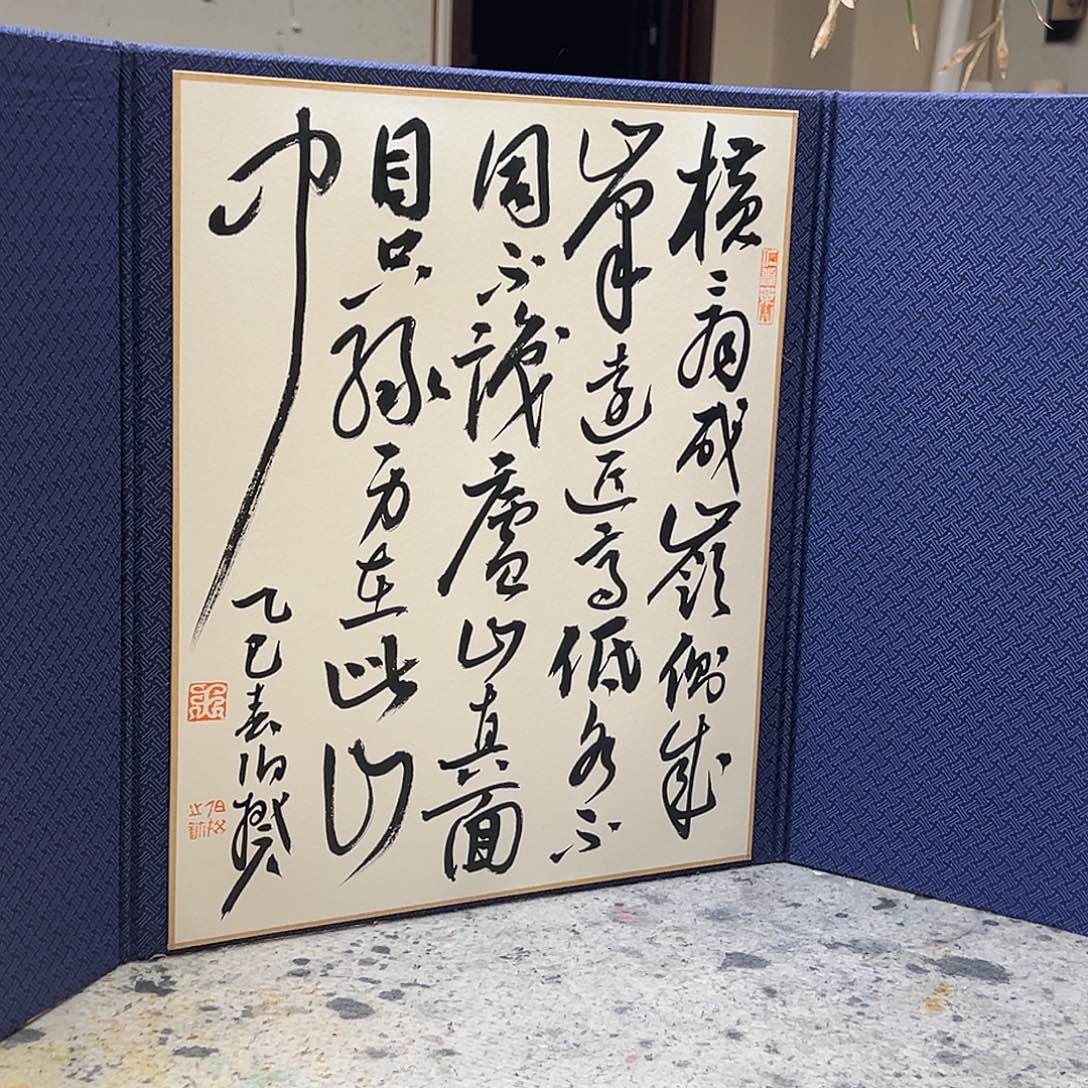 橫看成嶺側成
峯遠近高低各不
同不識廬山真面
目只緣身在此山
中
乙巳春伯